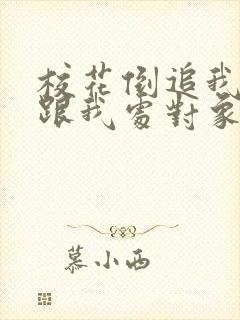 校花倒追我
跟我處對象
慕小西